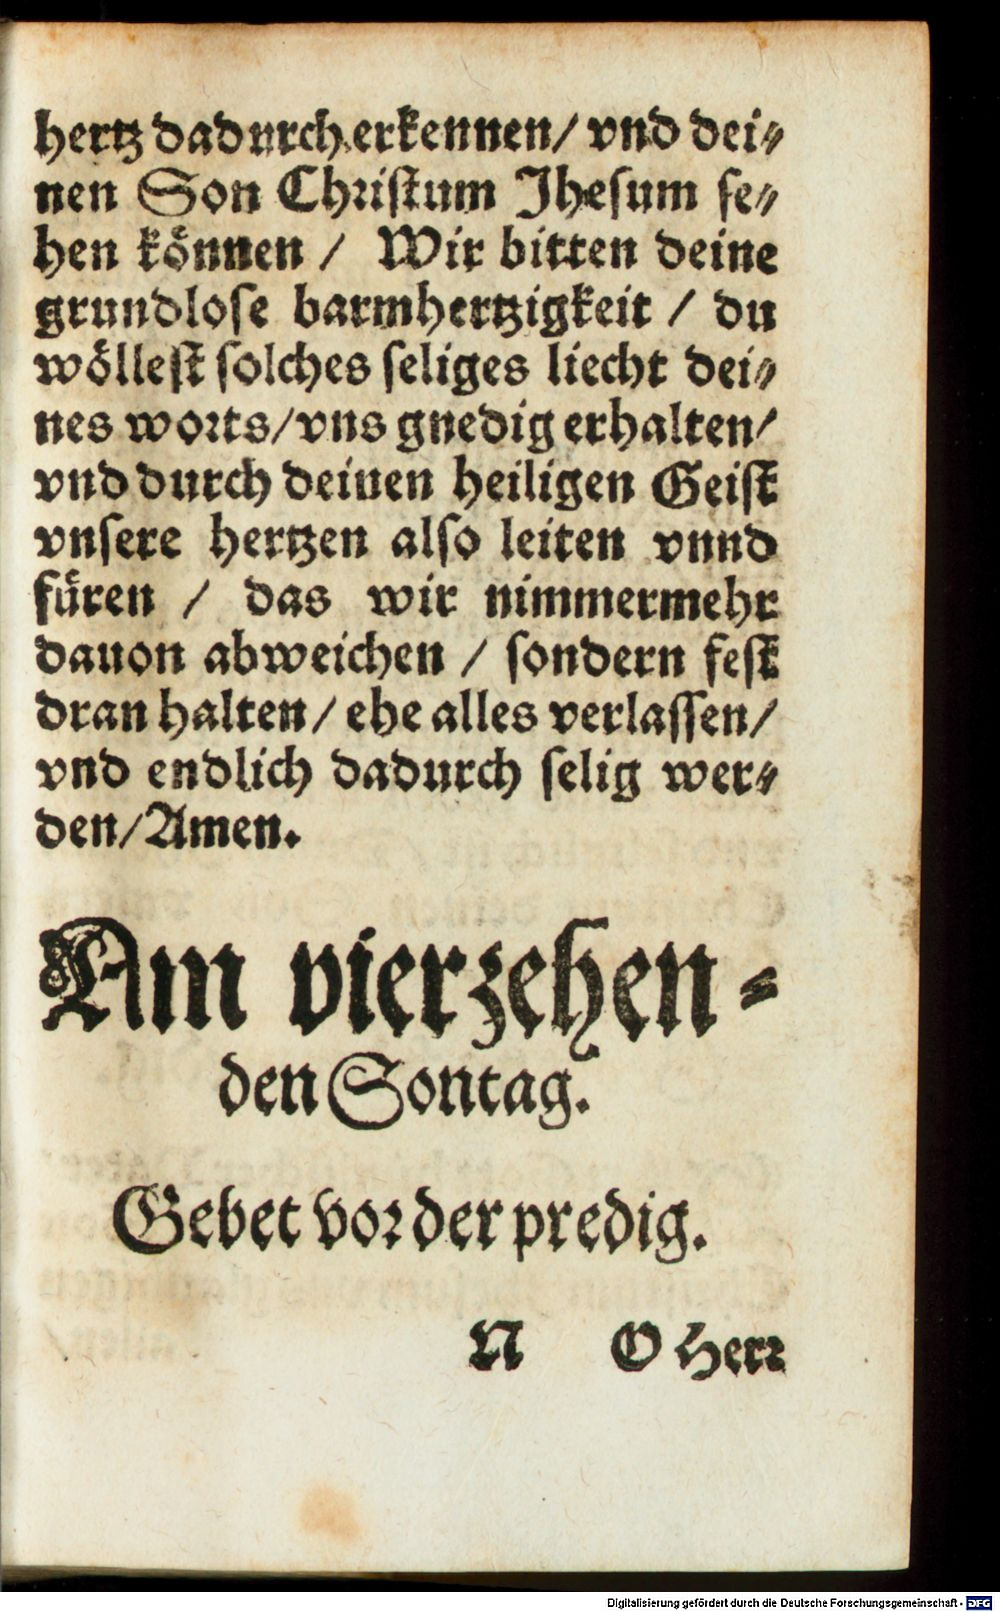 hertz dadurch erkennen/ vnd dei⸗
nen Son Christum Jhesum se⸗
hen können / Wir bitten deine
grundlose barmhertzigkeit / du
wöllest solches seliges liecht dei⸗
nes worts/vns gnedig erhalten/
vnd durch deinen heiligen Geist
vnsere hertzen also leiten vnnd
füren / das wir nimmermehr
dauon abweichen / sondern fest
dran halten/ ehe alles verlassen/
vnd endlich dadurch selig wer⸗
den/Amen.
Am vierzehen⸗
den Sontag.
Gebet vor der predig.
N O Herr
Digitalisierung gefördert durch die Deutsche Forschungsgemeinschaft - DFG